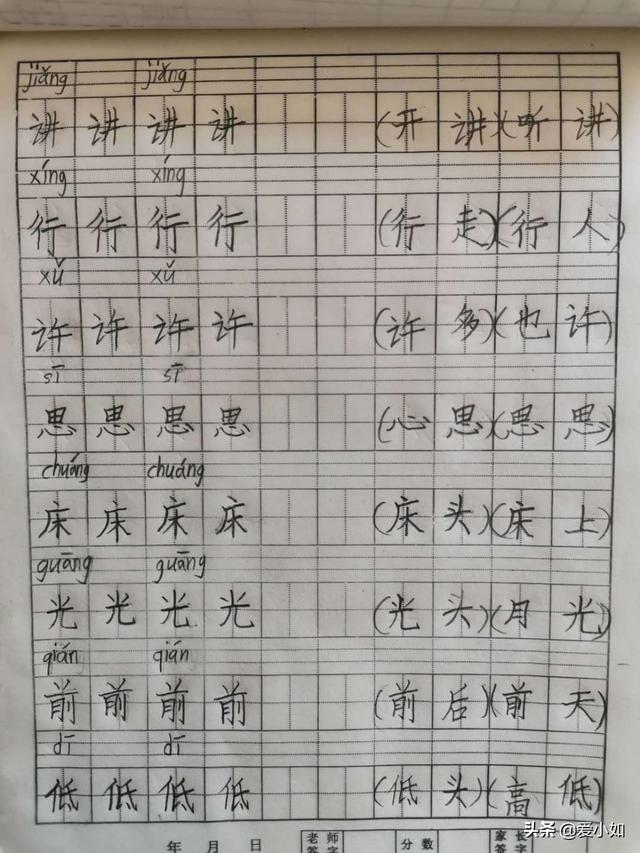 jiǎng jiǎng
讲 讲 讲 讲 (开 讲)(听 讲)
xíng xíng
行 行 行 行 (行 走)(行 人)
xǔ xǔ
许 许 许 许 (许 多)(也 许)
sī sī
思 思 思 思 (心 思)(思 思)
chuáng chuáng
床 床 床 床 (床 头)(床 上)
guāng guāng
光 光 光 光 (光 头)(月 光)
qián qián
前 前 前 前 (前 后)(前 天)
dī dī
低 低 低 低 (低 头)(高 低)
年 月 日 老师签字 分数 家长签字
头条 @爱小如